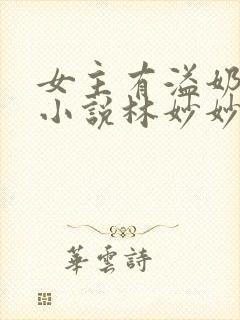 女主有溢奶
小說林妙妙
華雲詩